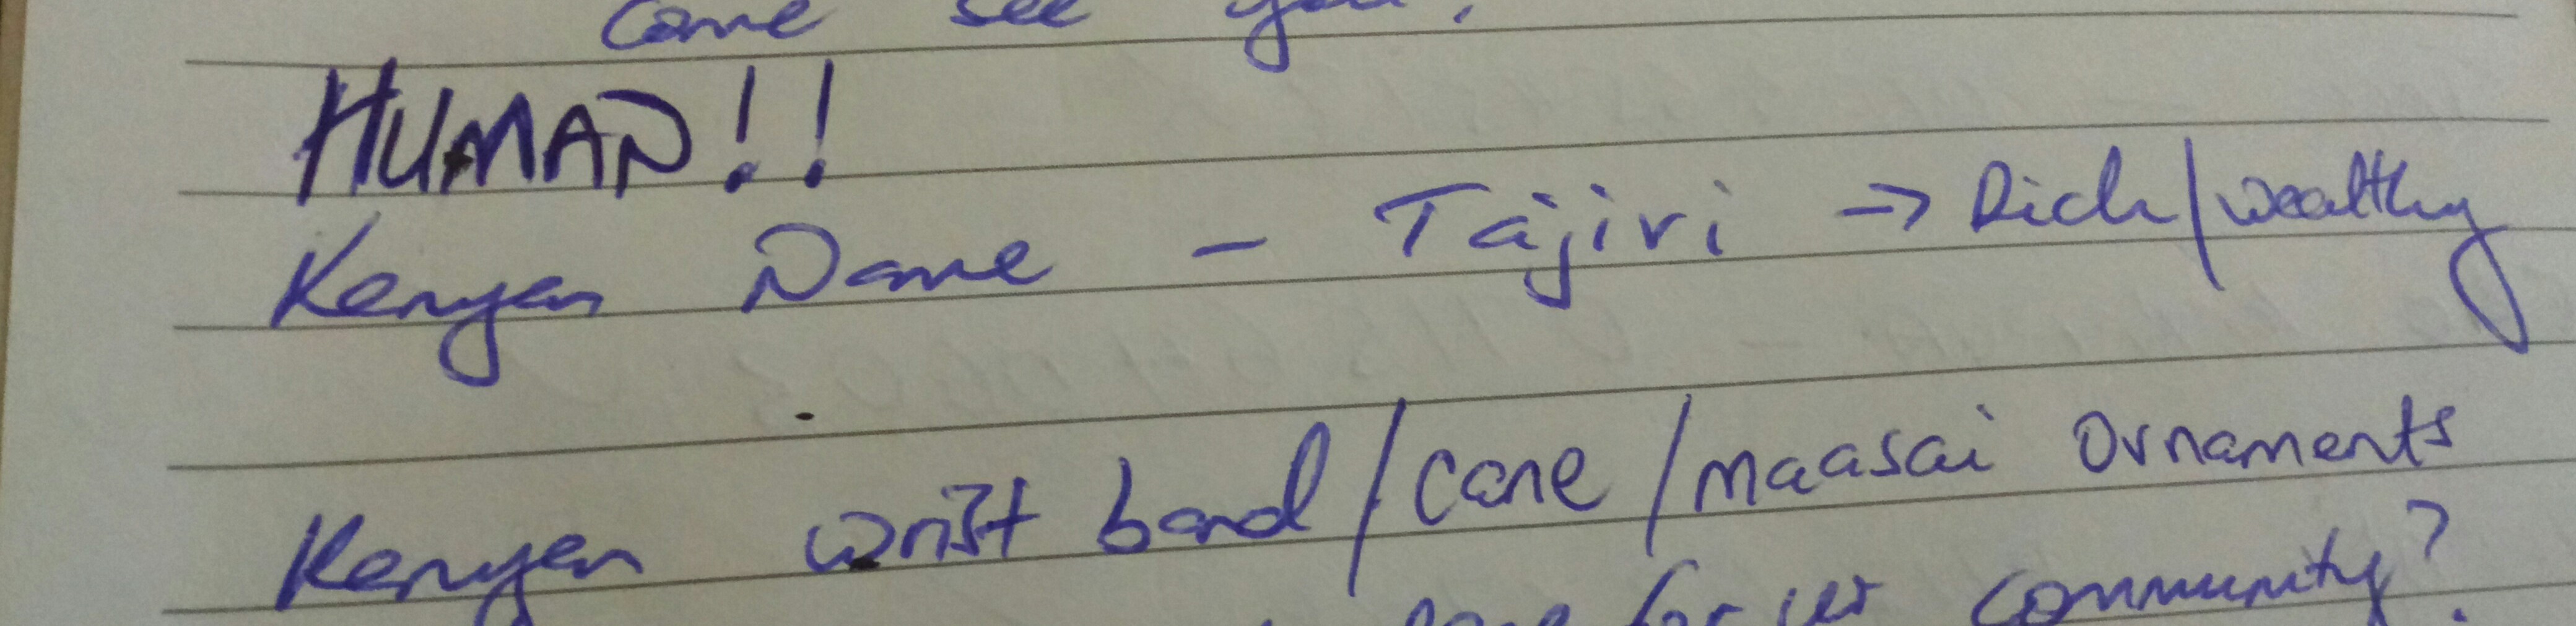 come see you.
HUMAN!!
Kenyan Name - Tajiri → Rich/wealthy
Kenyan wrist band/cane/maasai ornaments
for ur community?